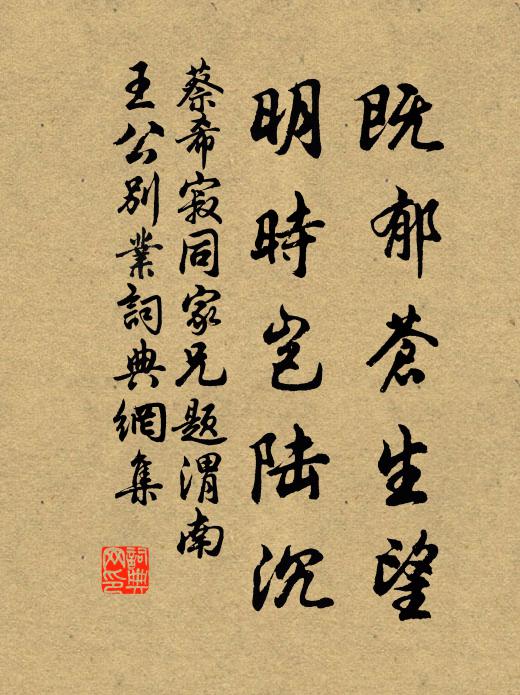 既郁苍生望
明時岂陆沉
蔡希寂同家兄题渭南
王公别業詞典網集
詞典
网印